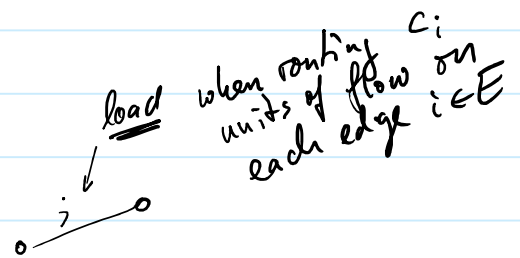 load when routing c_i
units of flow on
each edge i ∈ E
j